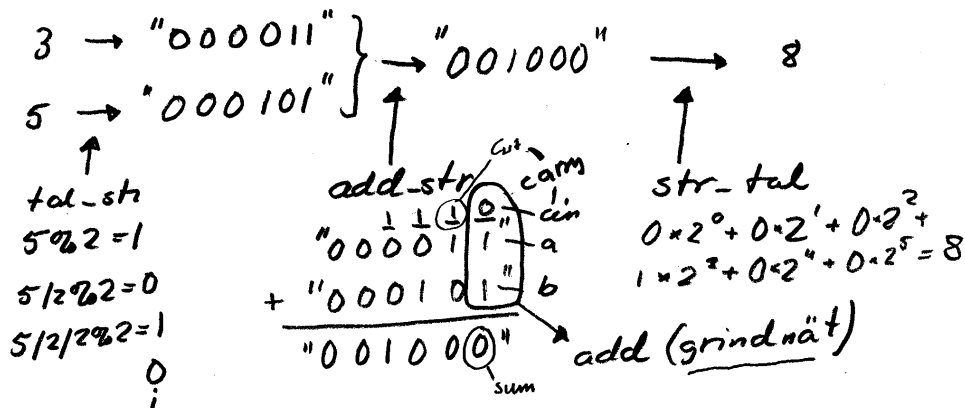 3 → "000011" } → "001000" → 8
5 → "000101"
tal_str
5%2=1
5/2%2=0
5/2/2%2=1
0
add_str
cut carry
1 1 1 0 cin
"000011" a
+ "000101" b
"001000"
sum
add (grindnät)
str_tal
0*2^0 + 0*2^1 + 0*2^2 +
1*2^3 + 0*2^4 + 0*2^5 = 8